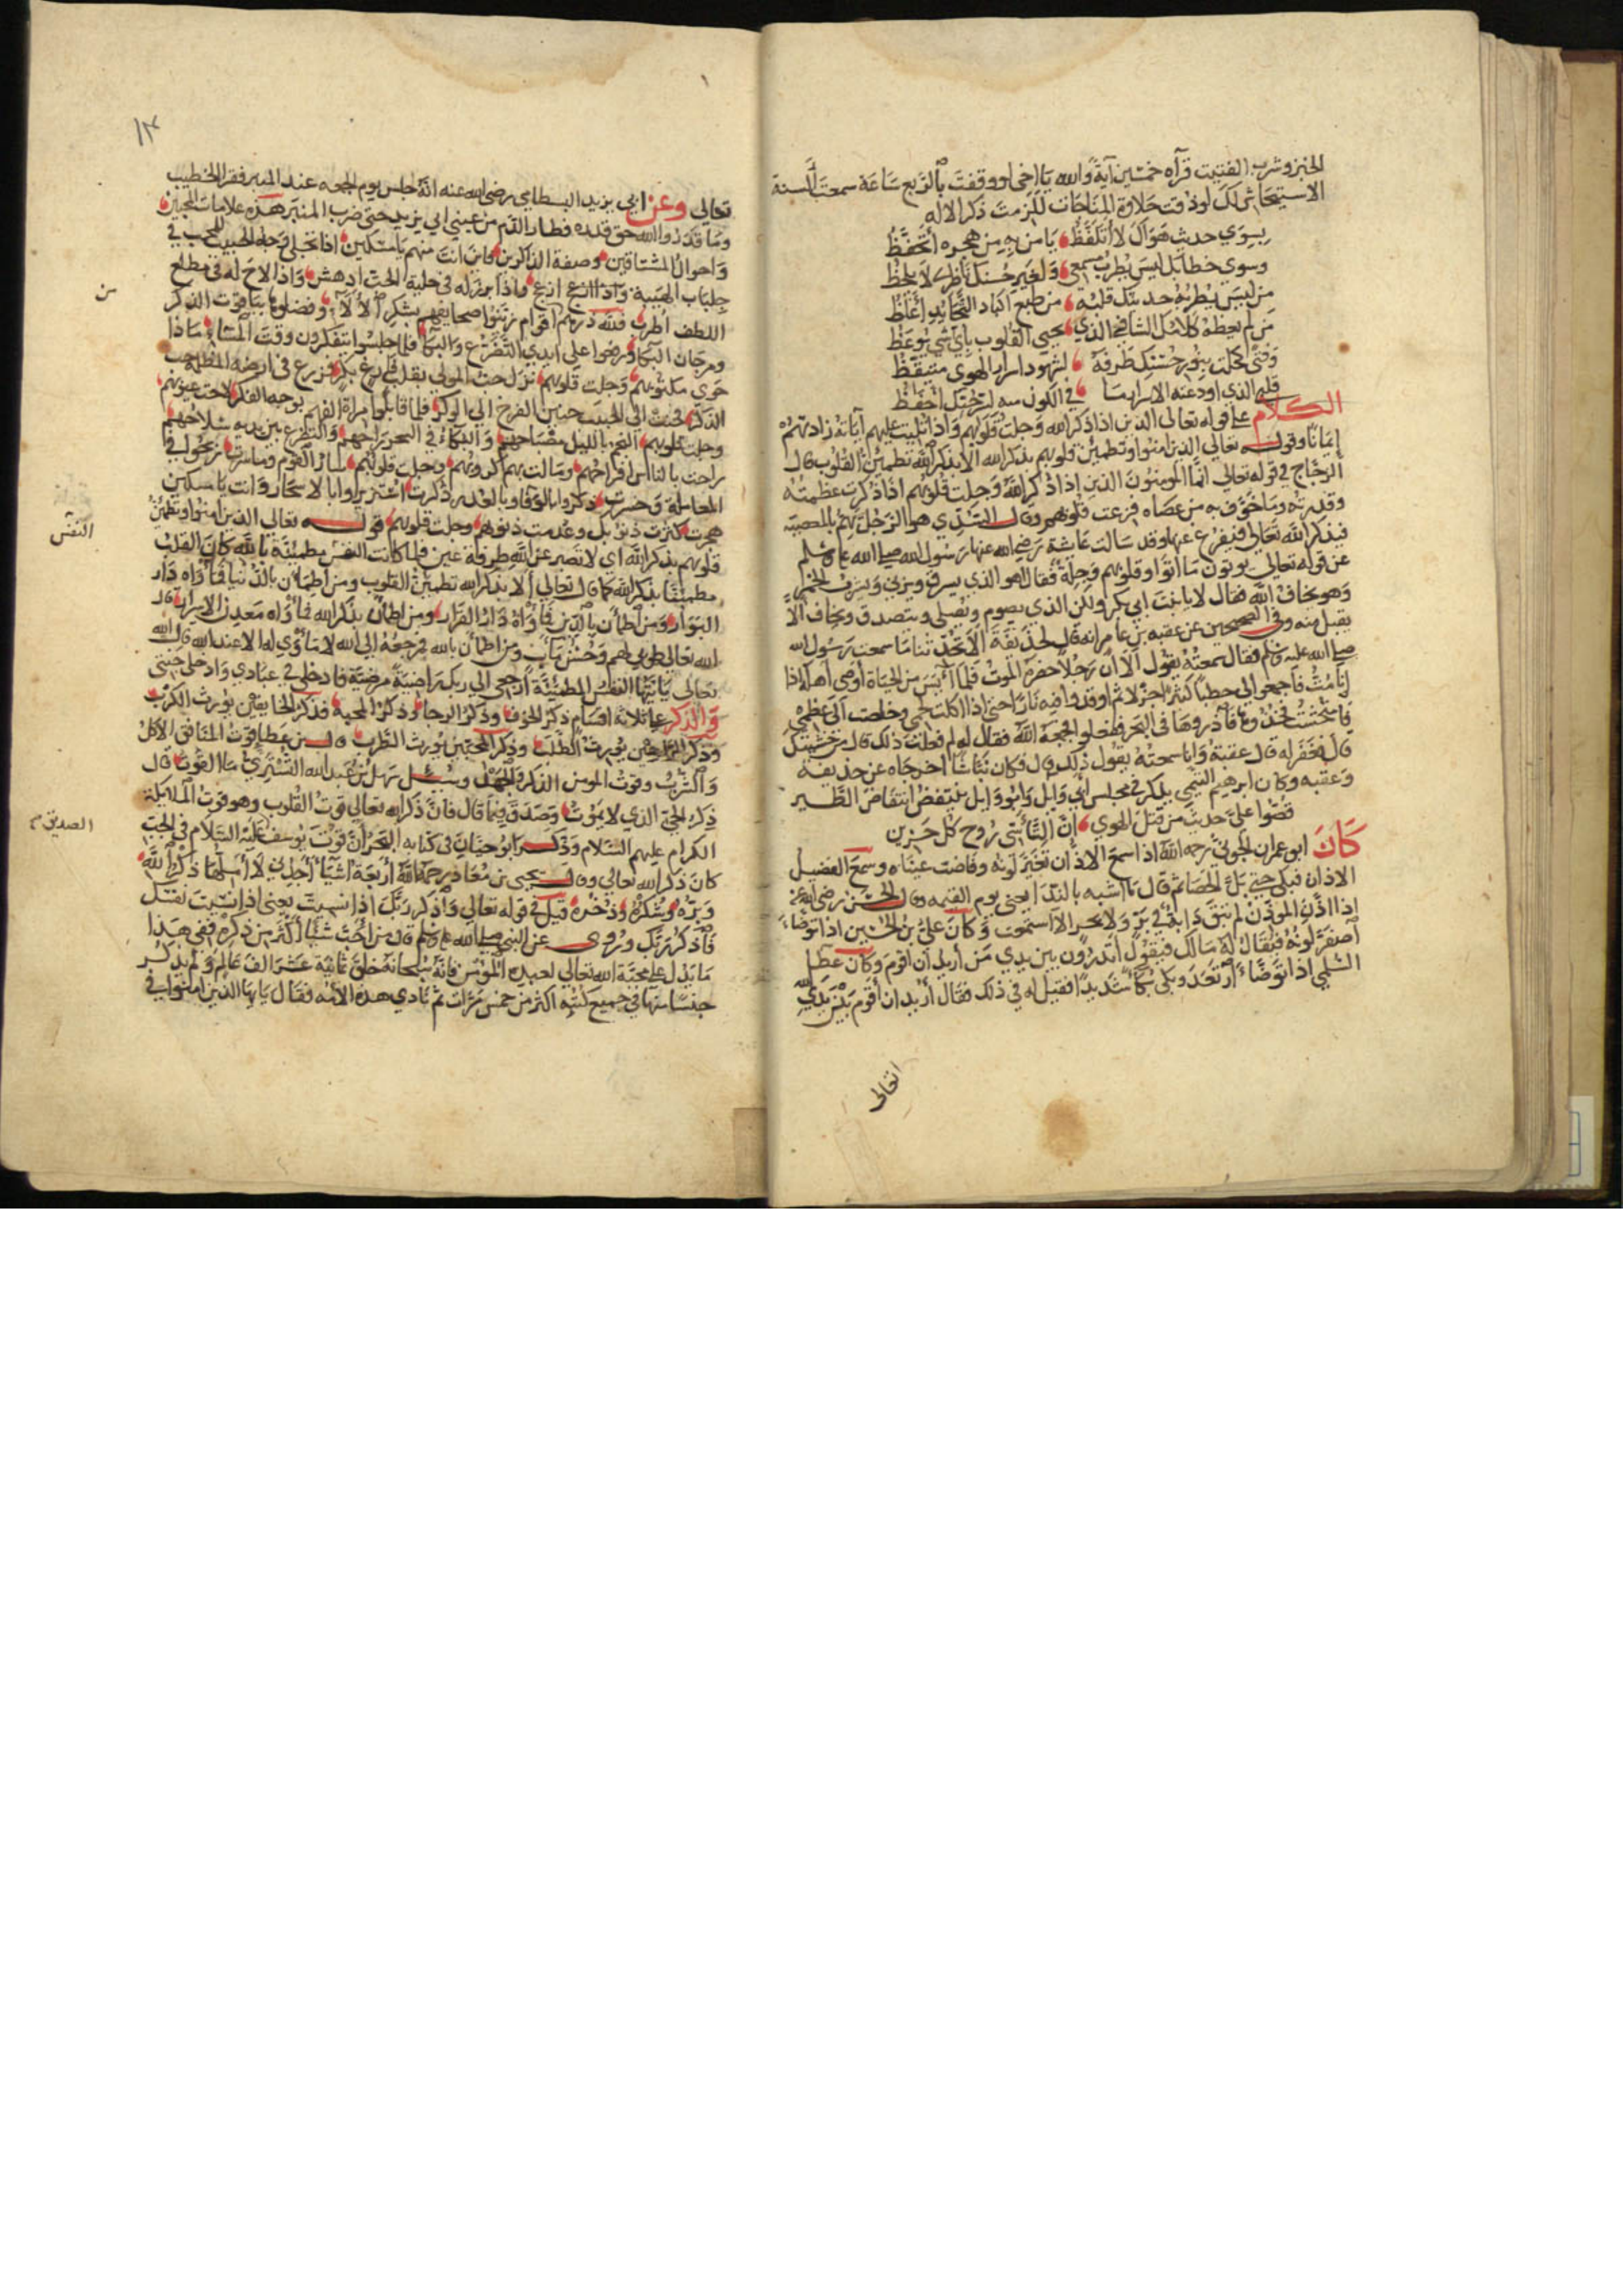 الخبز وشرب الفتيت قرآة خمسين آية والله يا اخي لو وقفت بالربع ساعة سمعت
الاستيحاش لك لو ذقت حلاوة المناجات للزمت ذكر الاله
بسوي حديث هواك لا اتلفظ يا من به من هجره اتحفظ
وسوي خطابك ليس يطرب مسمعي ولغير حسنك ناظري لا يلحظ
من ليس يطربه حديثك قلبه من طبع اكباد
من لم يعظه كلامك الشافي الذي يحيي القلوب باي شي يوعظ
وفتى كحلت بنور حسنك طرفه لشهود اسرار الهوي متيقظ
قلبي الذي اودعته الاسرار ما في الكون منه
الكلام على قوله تعالى الذين اذا ذكر الله وجلت قلوبهم واذا تليت عليهم آياته زادتهم
إيمانا وقوله تعالي الذين امنوا وتطمئن قلوبهم بذكر الله الا بذكر الله تطمئن القلوب قال
الزجاج في قوله تعالي انما المومنون الذين اذا ذكر الله وجلت قلوبهم اذا ذكرت عظمته
وقدرته وما خوف به من عصاه فزعت قلوبهم وقال السدي هو الرجل يهم بالمعصية
فيذكر الله تعالى فيفزع عنها وقد سالت عايشة رضي الله عنها رسول الله صلى الله عليه وسلم
عن قوله تعالي يوتون ما اتوا وقلوبهم وجلة فقال اهو الذي يسرق ويزني ويشرب الخمر
وهو يخاف الله فقال لا يا بنت ابي بكر ولكن الذي يصوم ويصلي ويتصدق ويخاف الا
يقبل منه وفي الصحيحين عن عقبه بن عامر انه قال لحذيفة الا تحدثنا ما سمعت من رسول الله
صلى الله عليه وسلم فقال سمعته يقول الا ان رجلا حضره الموت فلما آيس من الحياة اوصى اهله اذا
انا مت فاجمعوا لي حطبا كثيرا جزلا ثم اوقدوا فيه نارا حتى اذا اكلت لحمي وخلصت الى عظمي
فامتحشت فخذوها فاذروها في البحر ففعلوا فجمعه الله فقال له لم فعلت ذلك قال من خشيتك
قال فغفر له قال عقبة وانا سمعته يقول ذلك قال فكان نباشا اخرجاه عن حذيفة
وعقبه وكان ابرهيم التيمي يذكر في مجلس ابي وايل وابو وايل ينتفض انتفاض الطير
قصوا على حديث من قتل الهوي ان التأسي روح كل حزين
كان ابو عمران الجوني رحمه الله اذا سمع الاذان تغير لونه وفاضت عيناه وسمع الفضيل
الاذان فبكى حتي بل الحصا ثم قال ما اشبه بالندا يعني يوم القيمه وقال الحسن رضي الله عنه
اذا اذن الموذن لم تبق دابة في بر ولا بحر الا استمعت وكان علي بن الحسين اذا توضا
اصفر لونه فيقال له مالك فيقول اتدرون بين يدي من أريد ان أقوم وكان عطا
السلمي اذا توضأ ارتعد وبكى بكا شديدا فقيل له في ذلك فقال أريد ان أقوم بين يدي الله
تعالى
١٣
تعالي وعن ابي يزيد البسطامي رضي الله عنه انه جلس يوم الجمعه عند المنبر فقرا الخطيب
وما قدروا الله حق قدره فطار الدم من عيني ابي يزيد حتى ضرب المنبر هذه علامات المحبين
واحوال المشتاقين وصفة الذاكرين فاين انت منهم يا مسكين اذا تجلى وجه الحبيب للمحب في
جلباب الهيبة واذا برز له في حلية الحب ادهش واذا لاح له في مطلع
اللطف اطرب فلله درهم اقوام زينوا صحايفهم بشكر الالآء وفصلوها بياقوت الذكر
ومرجان البكا ورضوا على ايدي التضرع والبكا فلما جلسوا يتفكرون وقت المسا ماذا
حوي مكتوبهم وجلت قلوبهم نزل حب المولي بقلب فارغ بكر فزرع في ارضه
الذكر فحنت الى الحبيب حنين الفرخ الي الوكر فلما قابلوا مراة الفهم بوجه الفكر لاحت عيوبهم
وجلت قلوبهم الفهم بالليل مصباحهم والبكا في السحر راحهم والتضرع بين يديه سلاحهم
راحت بالناس افراحهم ومالت بهم كروبهم وجلت قلوبهم سار القوم وما سرت
المعاملة وخسرت ذكروا بالوفا وبالغدر ذكرت اعتزيروا بالاسحار وانت يا مسكين
هجرت كثرت ذنوبك وعدمت ذنوبهم وجلت قلوبهم قوله تعالى الذين امنوا وتطمئن
قلوبهم بذكر الله اي لا تصبر عن الله طرفة عين فلما كانت النفس مطمئنة بالله كان القلب
مطمئنا بذكر الله كما قال تعالي الا بذكر الله تطمئن القلوب ومن اطمأن بالدنيا فمأواه دار
البوار ومن اطمأن بالدين فمأواه دار القرار ومن اطمأن بذكر الله فمأواه معدن الاسرار قال
الله تعالى طوبى لهم وحسن مآب ومن اطمأن بالله فمرجعه الي الله لا مأوي له الا عند الله قال الله
تعالى يا ايتها النفس المطمئنة ارجعي الي ربك راضية مرضية فادخلي في عبادي وادخلي جنتي
والذكر على ثلاثة اقسام ذكر الخوف وذكر الرجا وذكر المحبة فذكر الخايفين يورث الكرب
وذكر الراجين يورث الطلب وذكر المحبين يورث الطرب وقال بن عطا قوت المنافق الاكل
والشرب وقوت المومن الذكر والجهد وسئل سهل بن عبد الله التستري ما القوت قال
ذكر الحي الذي لا يموت وصدق فيما قال فان ذكر الله تعالي قوت القلوب وهو قوت الملايكة
الكرام عليهم السلام وذكر ابو حيان في كتابه البحر ان قوت يوسف عليه السلام في الجب
كان ذكر الله تعالي وقال يحيى بن معاذ رحمه الله اربعة اشيآ
وبره وشكره وذخره قيل في قوله تعالي واذكر ربك اذا نسيت يعني اذا نسيت نفسك
فاذكر ربك وروى عن النبي صلى الله عليه وسلم قال من احب شيئا أكثر من ذكره ففي هذا
ما يدل على محبة الله تعالي لعبده المؤمن فانه سبحانه خلق ثمانية عشر الف عالم ولم يذكر
جنسا منها في جميع كتبه اكثر من خمس مرات ثم نادي هذه الامة فقال يا ايها الذين امنوا في
النفس
الصديق